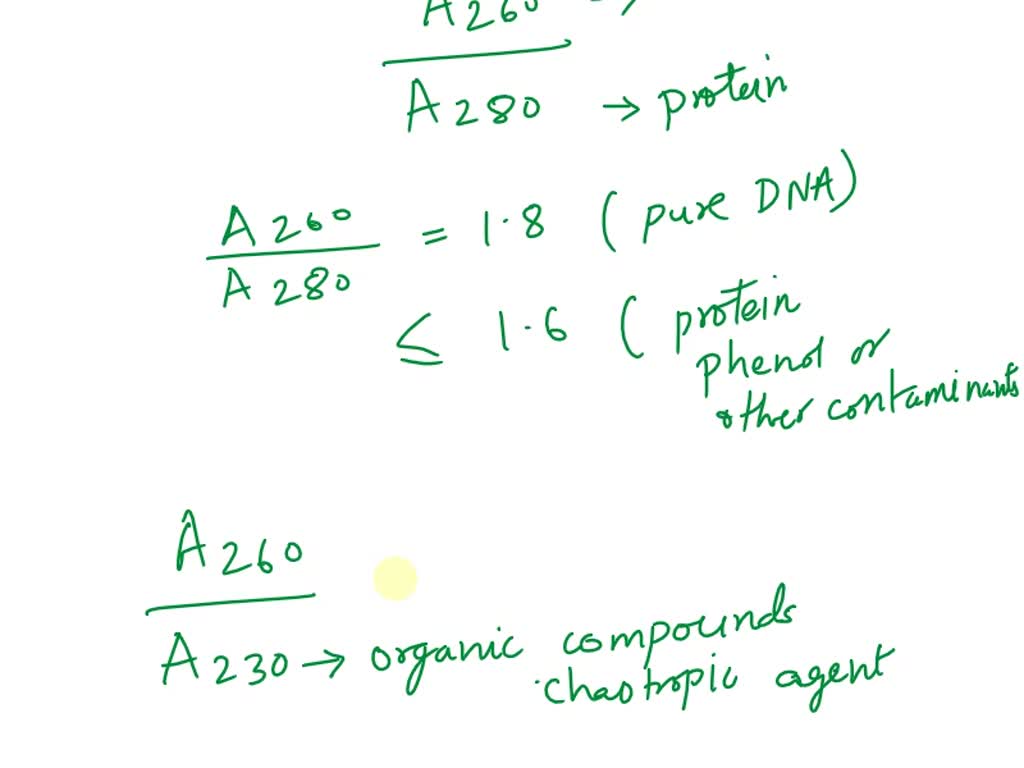 A260
A280 → protein
A260 / A280 = 1.8 ( pure DNA)
≤ 1.6 ( protein
phenol or
other contaminants
A260
A230 → organic compounds
chaotropic agent